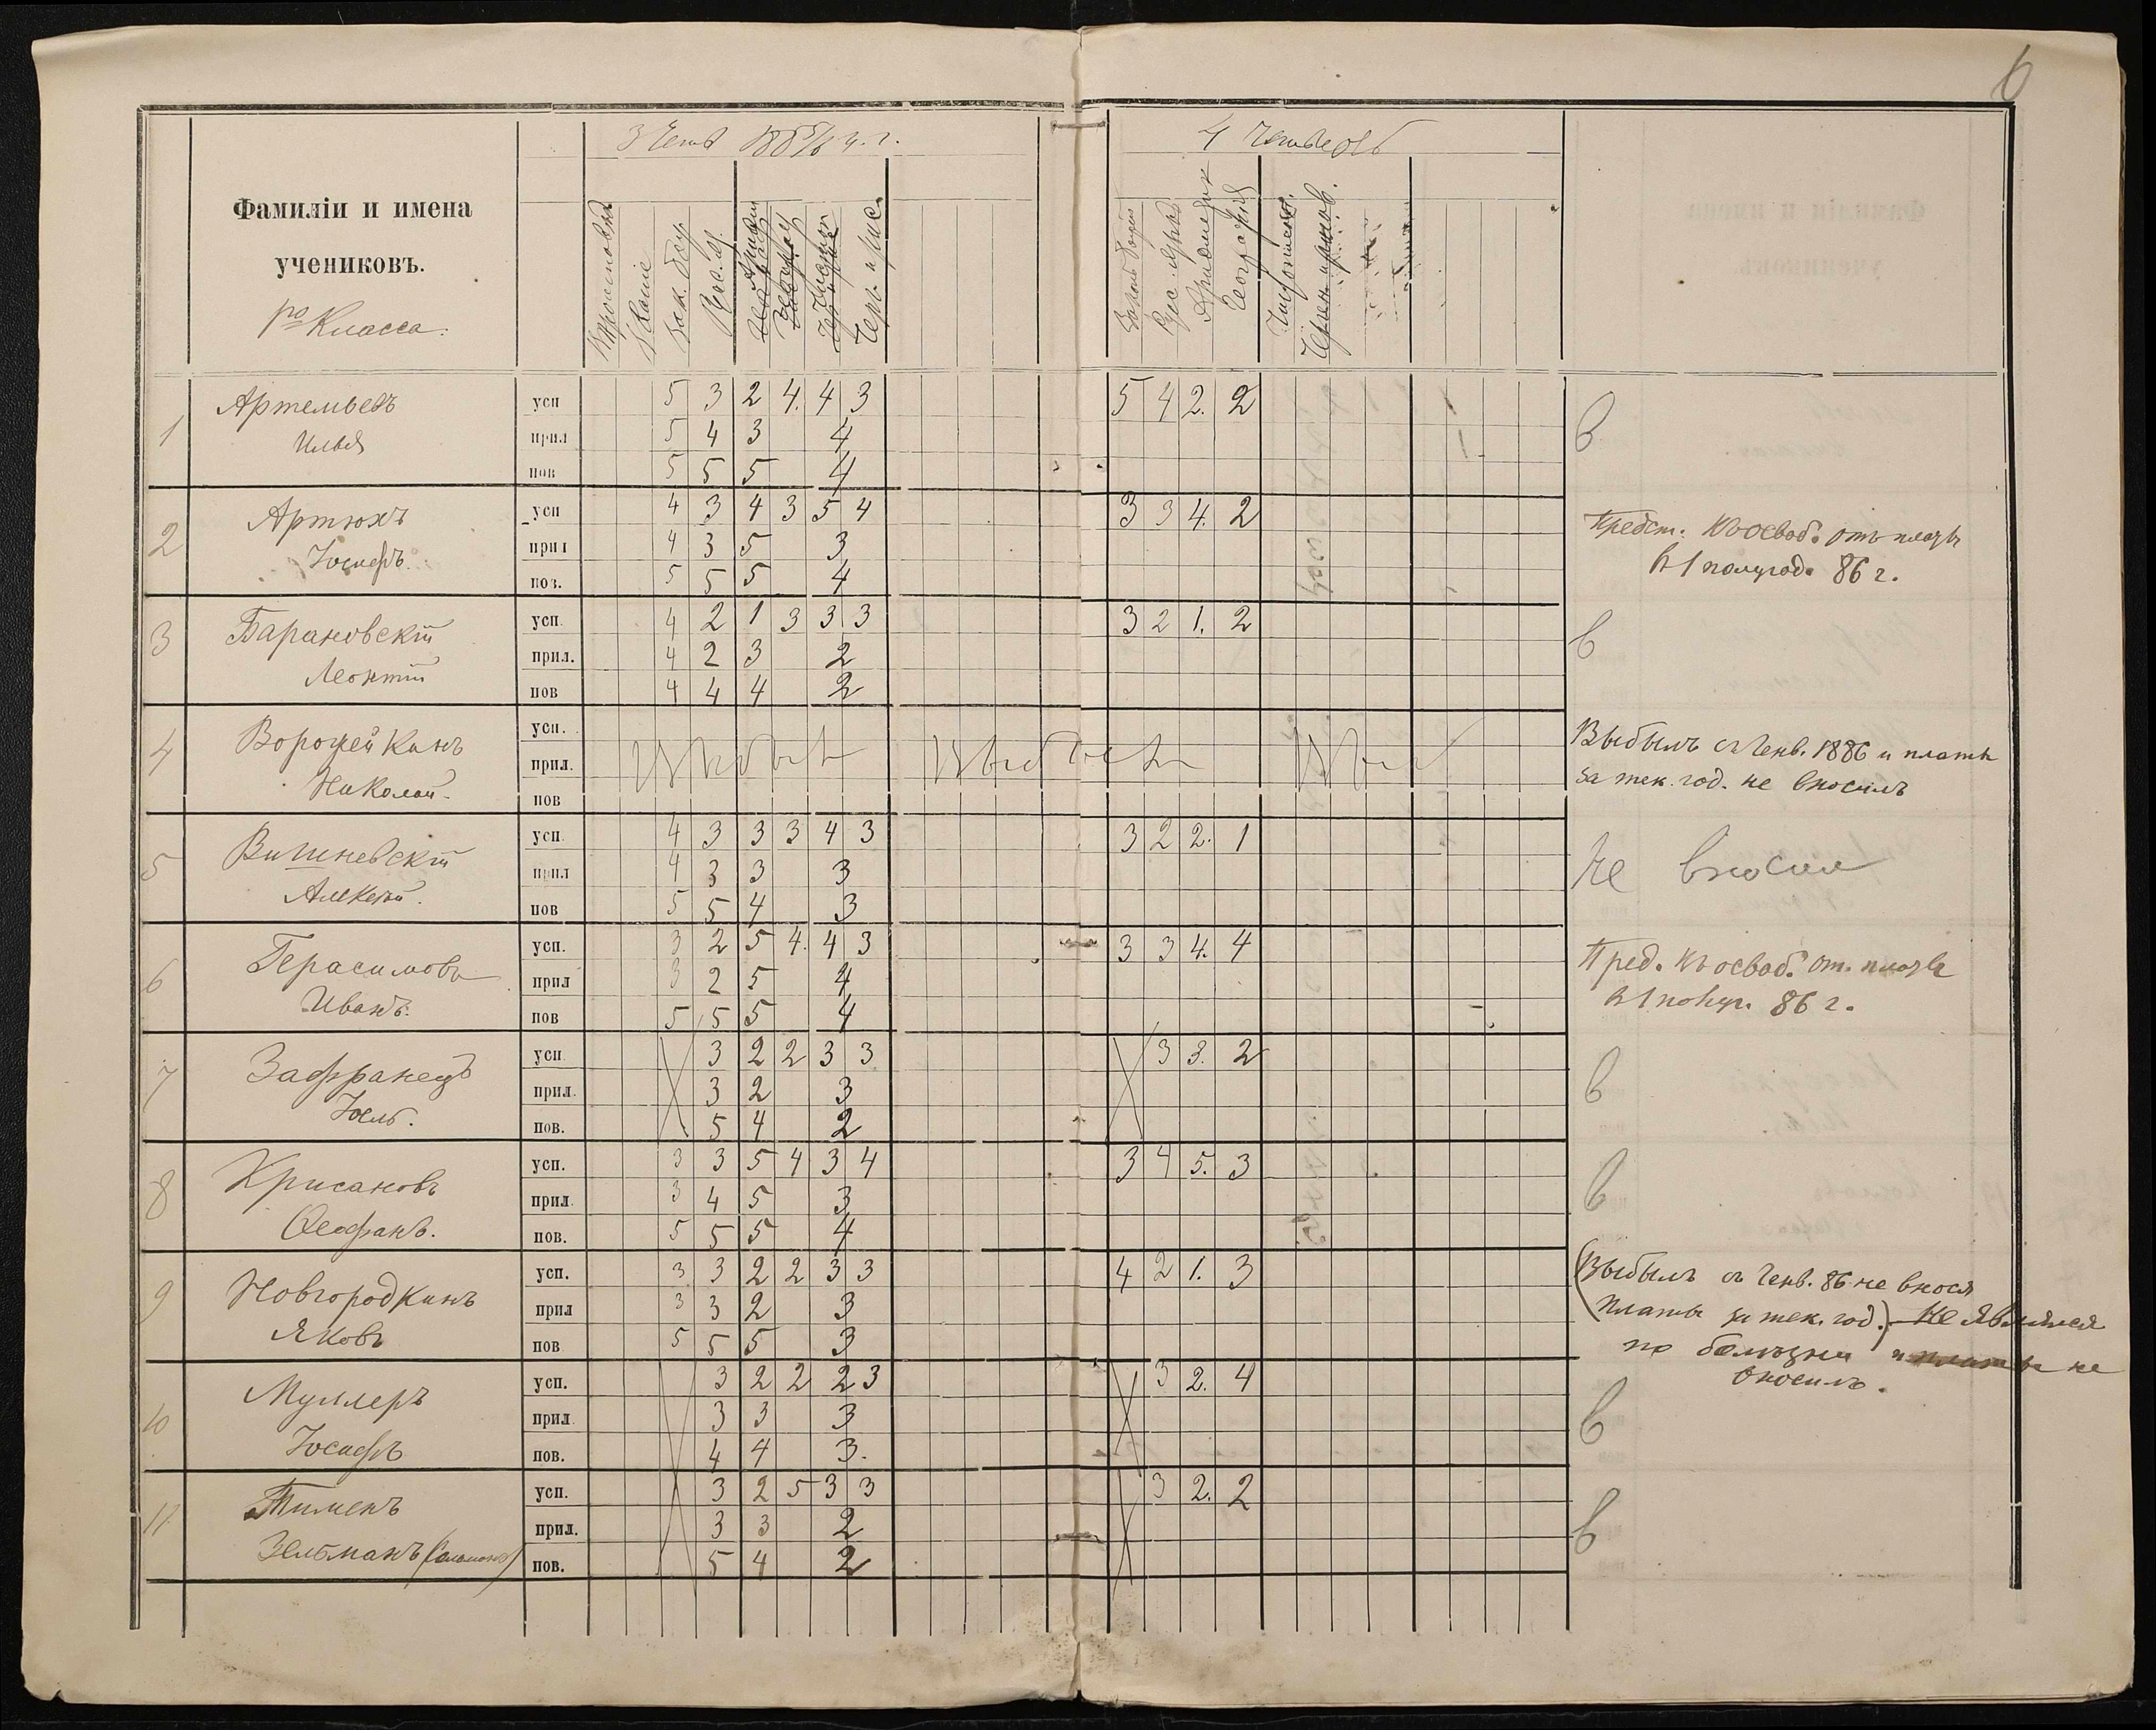 6
3 Четв 1885/6 у. г.
4 Четверть
Фамиліи и имена
учениковъ.
Класса.
Зак. Бож
Черч. и рис.
Законъ Божій
Рус. языкъ
Ариѳметик
Географія
Чистописан.
Черчен. и рисов.
1 Артемьевъ усп 5 3 2 4. 4 3 5 4 2. 2 в
Илья прил 5 4 3 4
пов 5 5 5 4
2 Артюхъ усп 4 3 4 3 5 4 3 3 4. 2 Предст. къ освоб. отъ платы
Іосифъ. прил 4 3 5 3 в 1 полугод. 86 г.
пов. 5 5 5 4
3 Барановскій усп. 4 2 1 3 3 3 3 2 1. 2 в
Леонтій прил. 4 2 3 2
пов 4 4 4 2
4 Ворофейкинъ усп. Выбылъ съ Генв. 1886 и платы
Николай. прил. Выбылъ Выбылъ за тек. год. не вносилъ
пов
5 Вишневскій усп. 4 3 3 3 4 3 3 2 2. 1 Не вносил
Алексѣй. прил 4 3 3 3
пов 5 5 4 3
6 Герасимовъ усп. 3 2 5 4. 4 3 3 3 4. 4 Пред. къ освоб. от. платы
Иванъ. прил 3 2 5 4 в 1 полуг. 86 г.
пов 5 5 5 4
7 Зафранецъ усп 3 2 2 3 3 3 3. 2 в
Іосль. прил. 3 2 3
пов. 5 4 2
8 Крисановъ усп. 3 3 5 4 3 4 3 4 5. 3 в
Ѳеофанъ. прил. 3 4 5 3
пов. 5 5 5 4
9 Новгородкинъ усп. 3 3 2 2 3 3 4 2 1. 3 (Выбылъ съ Генв. 86 не внося
Яковъ прил 3 3 2 3 платы за тек. год.) Не являлся
пов 5 5 5 3 по болѣзни и платы не
вносилъ.
10 Муллеръ усп. 3 2 2 2 3 3 2. 4 в
Іосифъ прил. 3 3 3
пов. 4 4 3.
11 Тименъ усп. 3 2 5 3 3 3 2. 2 в
Зельманъ (Соломонъ) прил. 3 3 2
пов. 5 4 2